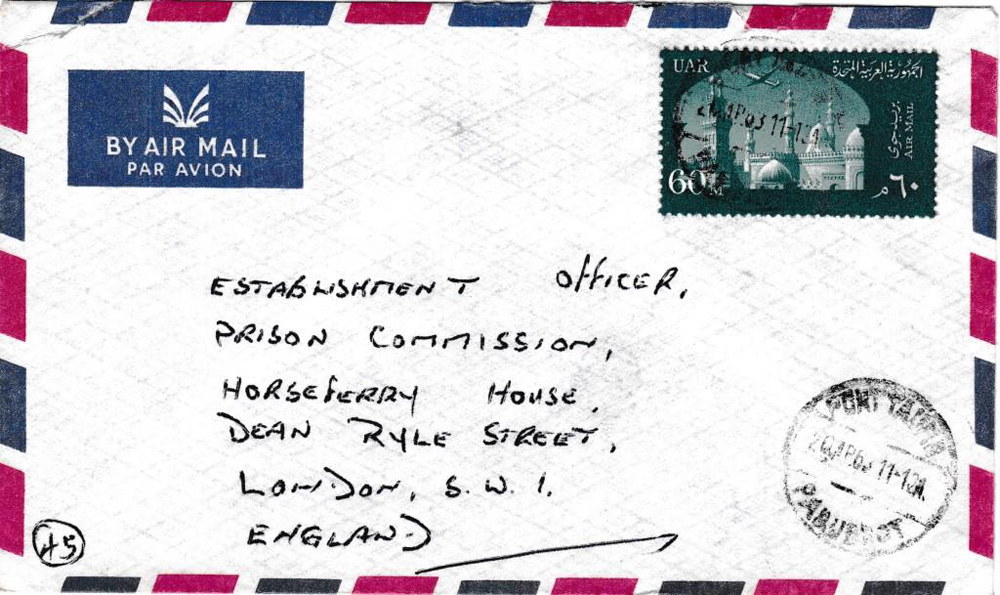 BY AIR MAIL
PAR AVION
UAR
الجمهورية العربية المتحدة
بريد جوى
AIR MAIL
60 M
٦٠ م
AP63 11-
ESTABLISHMENT OFFICER,
PRISON COMMISSION,
HORSEFERRY HOUSE,
DEAN RYLE STREET,
LONDON, S.W.1.
ENGLAND
PORT TAUFIQ
AP63 11-
PAQUEBOT
45